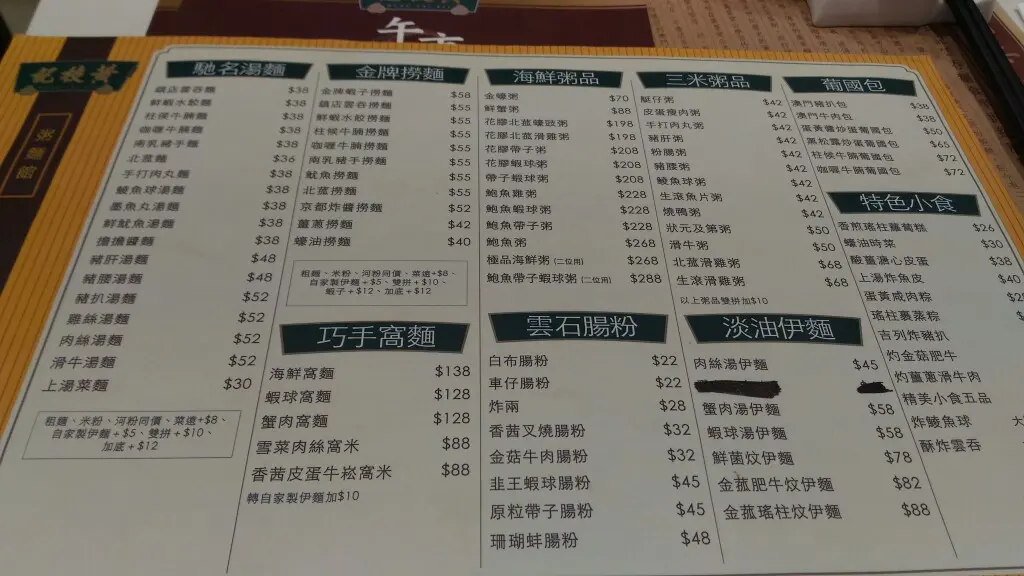 馳名湯麵
鎮店雲吞麵 $38
鮮蝦水餃麵 $38
柱侯牛腩麵 $38
咖喱牛腩麵 $38
南乳豬手麵 $38
北菰麵 $36
手打肉丸麵 $38
鯪魚球湯麵 $38
墨魚丸湯麵 $38
鮮魷魚湯麵 $38
擔擔醬麵 $38
豬肝湯麵 $48
豬腰湯麵 $48
豬扒湯麵 $52
雞絲湯麵 $52
肉絲湯麵 $52
滑牛湯麵 $52
上湯菜麵 $30
粗麵、米粉、河粉同價、菜遠+$8、
自家製伊麵+$5、雙拼+$10、
加底+$12
金牌撈麵
金牌蝦子撈麵 $58
鎮店雲吞撈麵 $55
鮮蝦水餃撈麵 $55
柱侯牛腩撈麵 $55
咖喱牛腩撈麵 $55
南乳豬手撈麵 $55
魷魚撈麵 $55
北菰撈麵 $55
京都炸醬撈麵 $52
薑蔥撈麵 $42
蠔油撈麵 $40
粗麵、米粉、河粉同價、菜遠+$8、
自家製伊麵+$5、雙拼+$10、
蝦子+$12、加底+$12
巧手窩麵
海鮮窩麵 $138
蝦球窩麵 $128
蟹肉窩麵 $128
雪菜肉絲窩米 $88
香茜皮蛋牛崧窩米 $88
轉自家製伊麵加$10
海鮮粥品
金蠔粥 $70
鮮蟹粥 $88
花膠北菰蠔豉粥 $198
花膠北菰滑雞粥 $198
花膠帶子粥 $208
花膠蝦球粥 $208
帶子蝦球粥 $208
鮑魚雞粥 $228
鮑魚蝦球粥 $228
鮑魚帶子粥 $228
鮑魚粥 $268
極品海鮮粥 (二位用) $268
鮑魚帶子蝦球粥 (二位用) $288
雲石腸粉
白布腸粉 $22
車仔腸粉 $22
炸兩 $28
香茜叉燒腸粉 $32
金菇牛肉腸粉 $32
韭王蝦球腸粉 $45
原粒帶子腸粉 $45
珊瑚蚌腸粉 $48
三米粥品
艇仔粥 $42
皮蛋瘦肉粥 $42
手打肉丸粥 $42
豬肝粥 $42
粉腸粥 $42
豬腰粥 $42
鯪魚球粥 $42
生滾魚片粥 $42
燒鴨粥 $42
狀元及第粥 $50
滑牛粥 $50
北菰滑雞粥 $68
生滾滑雞粥 $68
以上粥品雙拼加$10
淡油伊麵
肉絲湯伊麵 $45
蟹肉湯伊麵 $58
蝦球湯伊麵 $58
鮮菌炆伊麵 $78
金菰肥牛炆伊麵 $82
金菰瑤柱炆伊麵 $88
葡國包
澳門豬扒包 $38
澳門牛肉包 $38
蛋黃醬炒蛋葡國包 $50
黑松露炒蛋葡國包 $65
柱侯牛腩葡國包 $72
咖喱牛腩葡國包 $72
特色小食
香煎瑤柱蘿蔔糕 $26
蠔油時菜 $30
酸薑溏心皮蛋 $38
上湯炸魚皮 $40
蛋黃咸肉粽
瑤柱裹蒸粽
吉列炸豬扒
灼金菇肥牛
灼薑蔥滑牛肉
精美小食五品
炸鯪魚球
酥炸雲吞